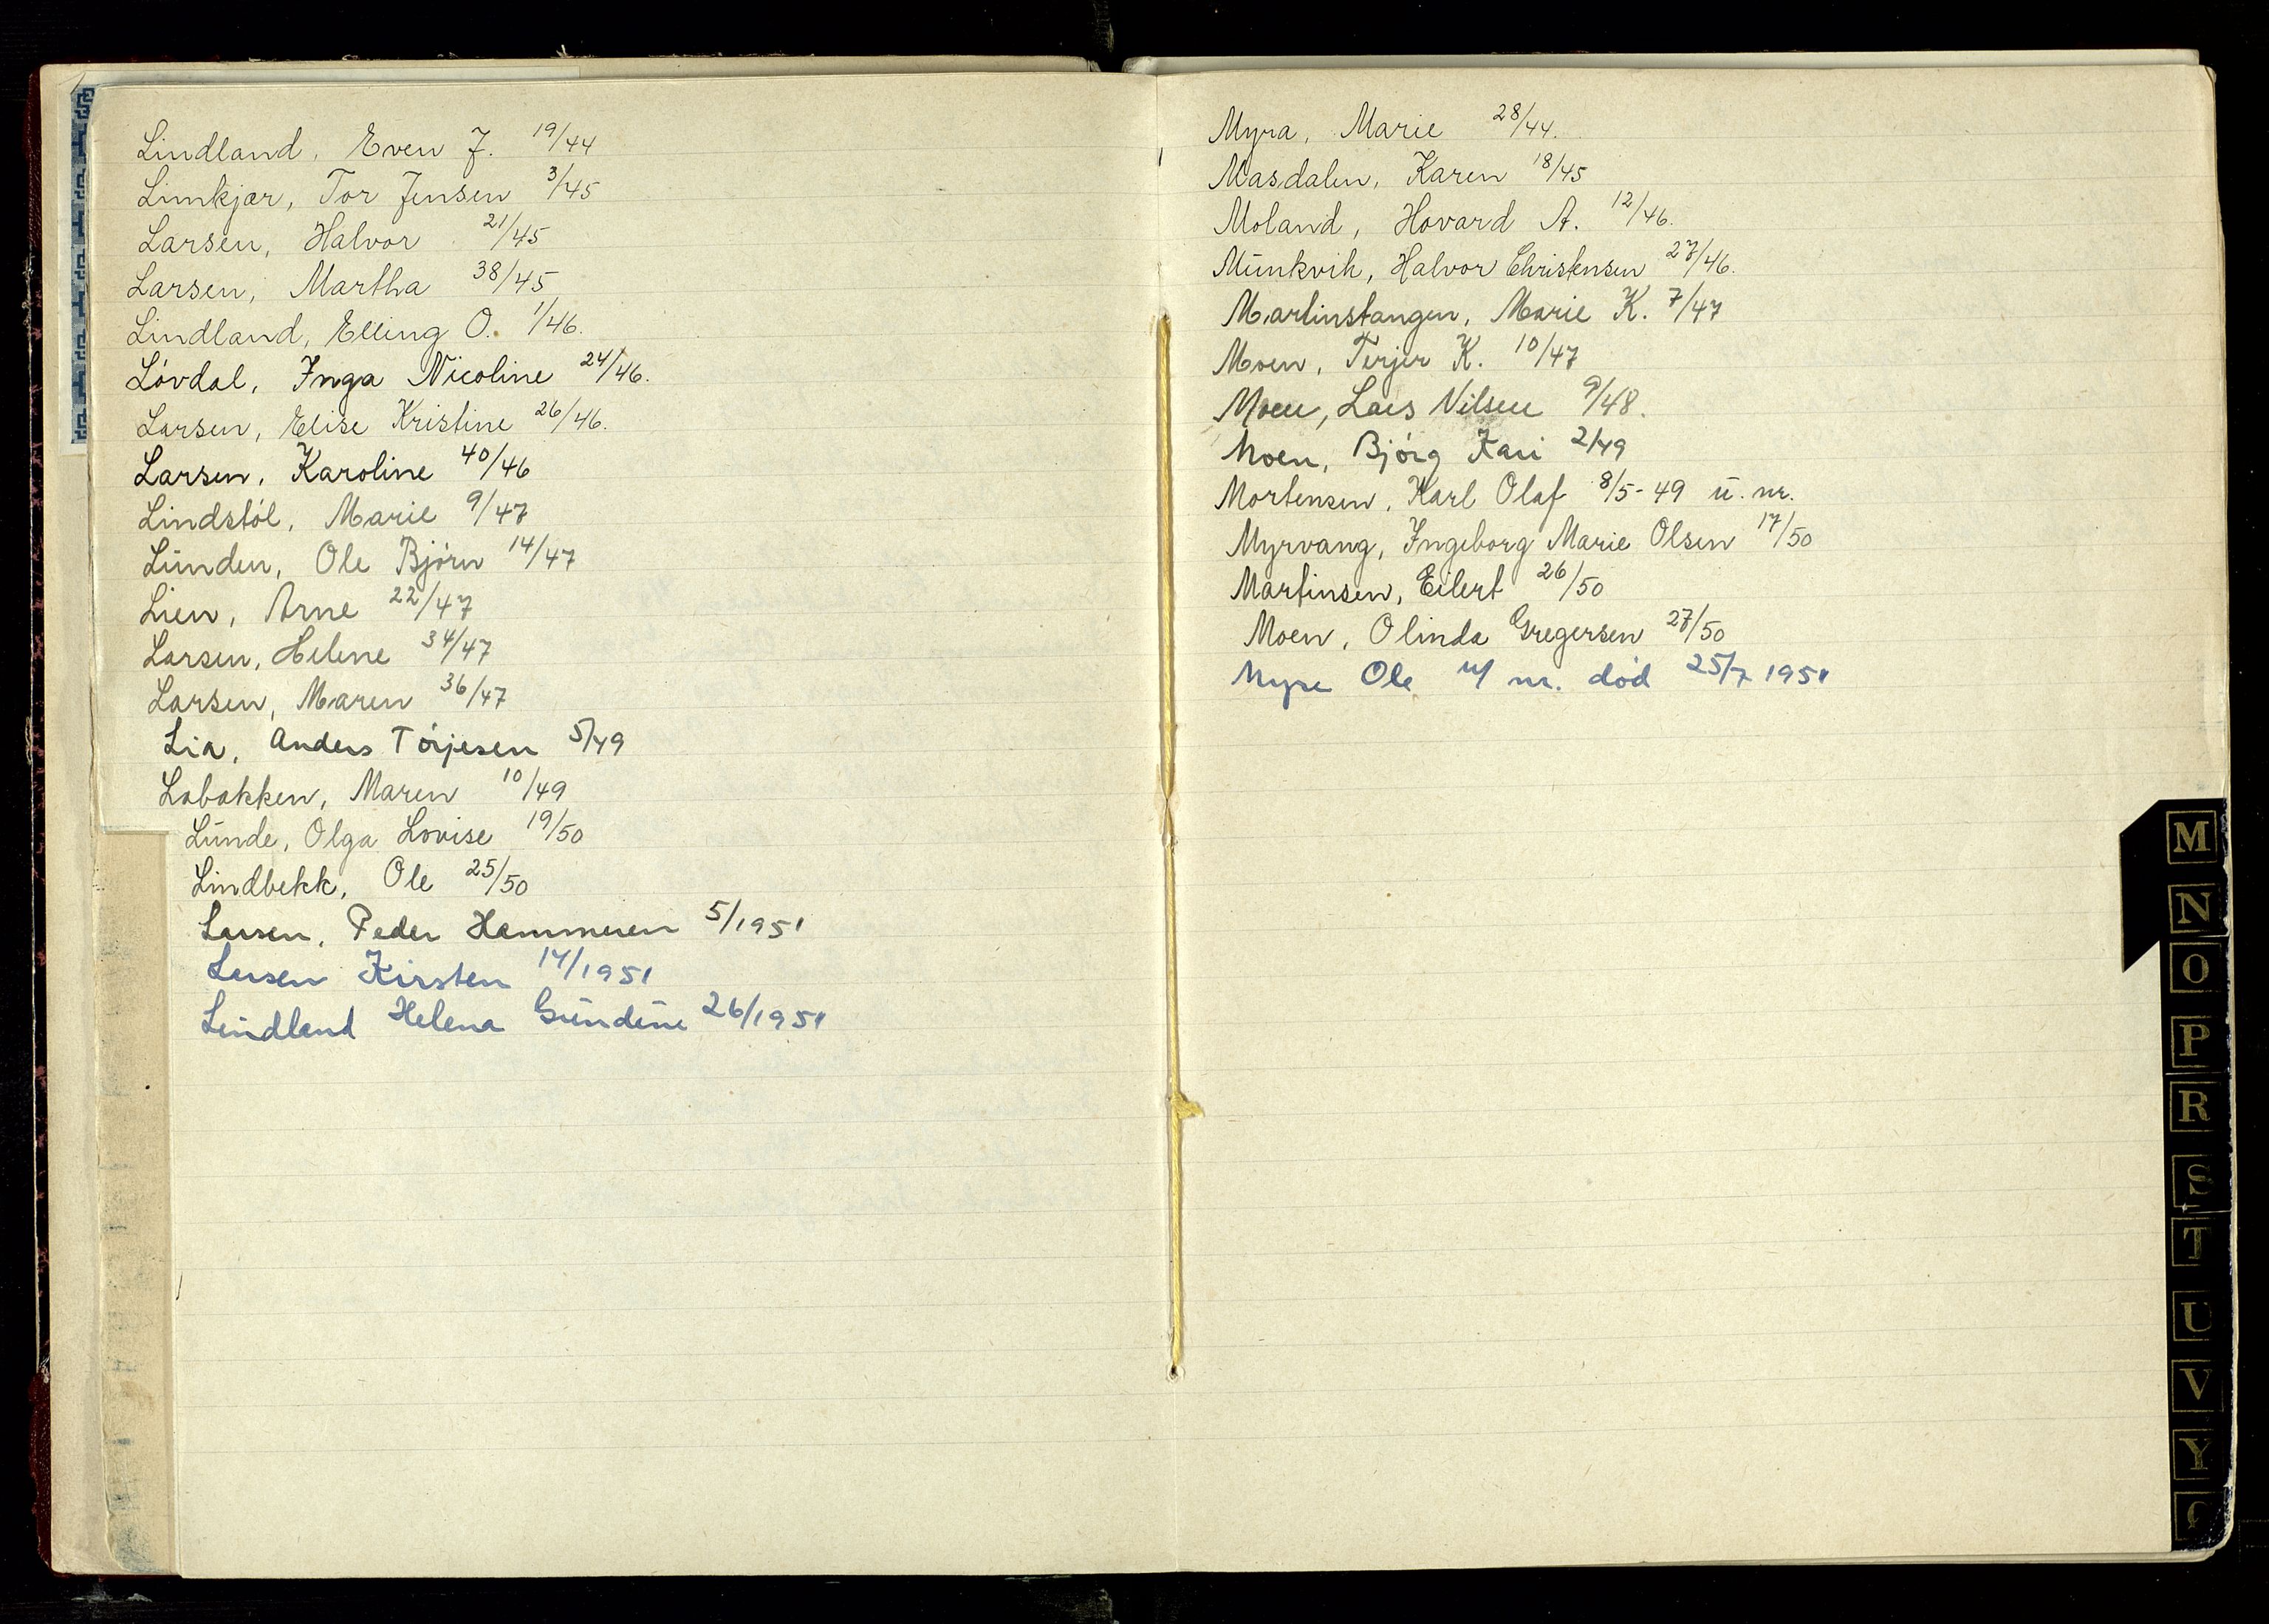 Lindland, Even J. 19/44
Limkjær, Tor Jensen 3/45
Larsen, Halvor 21/45
Larsen, Martha 38/45
Lindland, Elling O. 1/46.
Løvdal, Inga Nicoline 24/46.
Larsen, Elise Kristine 26/46.
Larsen, Karoline 40/46
Lindstøl, Marie 9/47
Lunden, Ole Bjørn 14/47
Lien, Arne 22/47
Larsen, Helene 34/47
Larsen, Maren 36/47
Lia, Anders Torjesen 5/49
Labakken, Maren 10/49
Lunde, Olga Lovise 19/50
Lindbekk, Ole 25/50
Larsen, Peder Hammeren 5/1951
Larsen Kirsten 14/1951
Lindland Helena Gundine 26/1951
Myra, Marie 28/44.
Masdalen, Karen 18/45
Moland, Hovard A. 12/46.
Munkvik, Halvor Christensen 27/46.
Martinstangen, Marie K. 7/47
Moen, Terjer K. 10/47
Moen, Lars Nilsen 9/48.
Moen, Bjørg Kari 2/49
Mortensen, Karl Olaf 8/5-49 u. nr.
Myrvang, Ingeborg Marie Olsen 17/50
Martinsen, Eilert 26/50
Moen, Olinda Gregersen 27/50
Myre Ole u/ nr. død 25/7 1951
M
N
O
P
R
S
T
U
V
Y